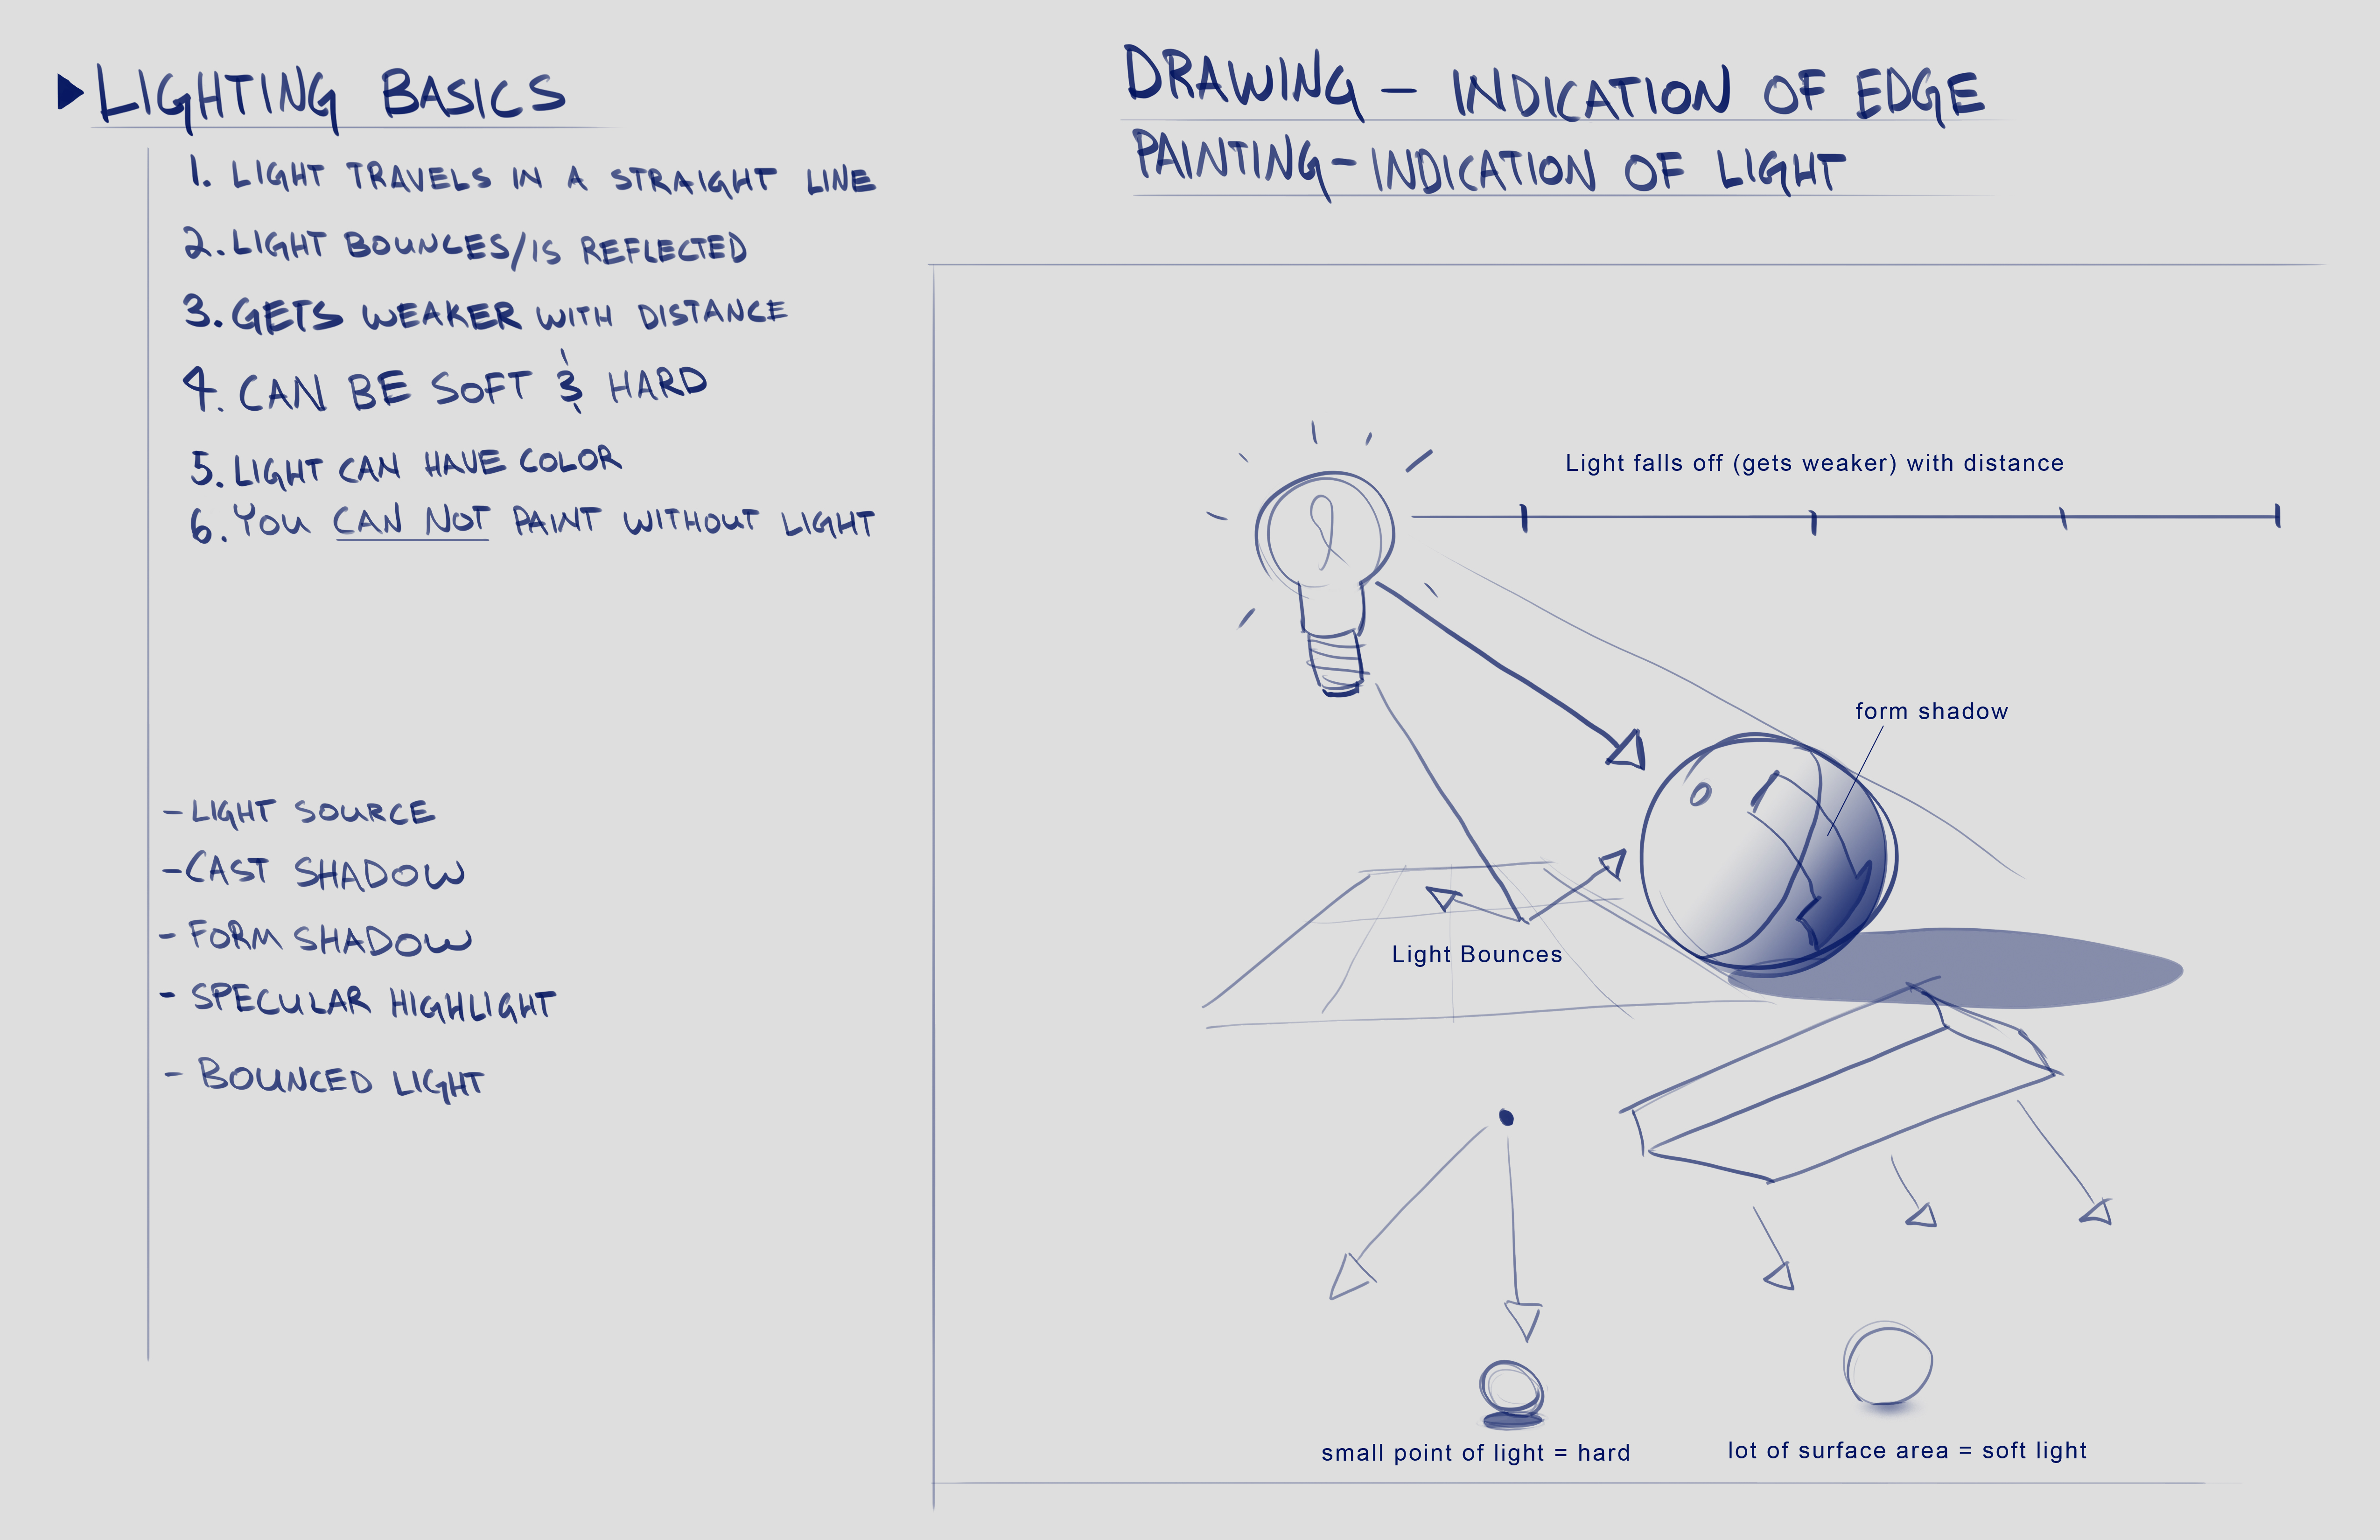 LIGHTING BASICS
1. LIGHT TRAVELS IN A STRAIGHT LINE
2. LIGHT BOUNCES/IS REFLECTED
3. GETS WEAKER WITH DISTANCE
4. CAN BE SOFT & HARD
5. LIGHT CAN HAVE COLOR
6. YOU CAN NOT PAINT WITHOUT LIGHT
- LIGHT SOURCE
- CAST SHADOW
- FORM SHADOW
- SPECULAR HIGHLIGHT
- BOUNCED LIGHT
DRAWING - INDICATION OF EDGE
PAINTING - INDICATION OF LIGHT
Light falls off (gets weaker) with distance
form shadow
Light Bounces
small point of light = hard
lot of surface area = soft light